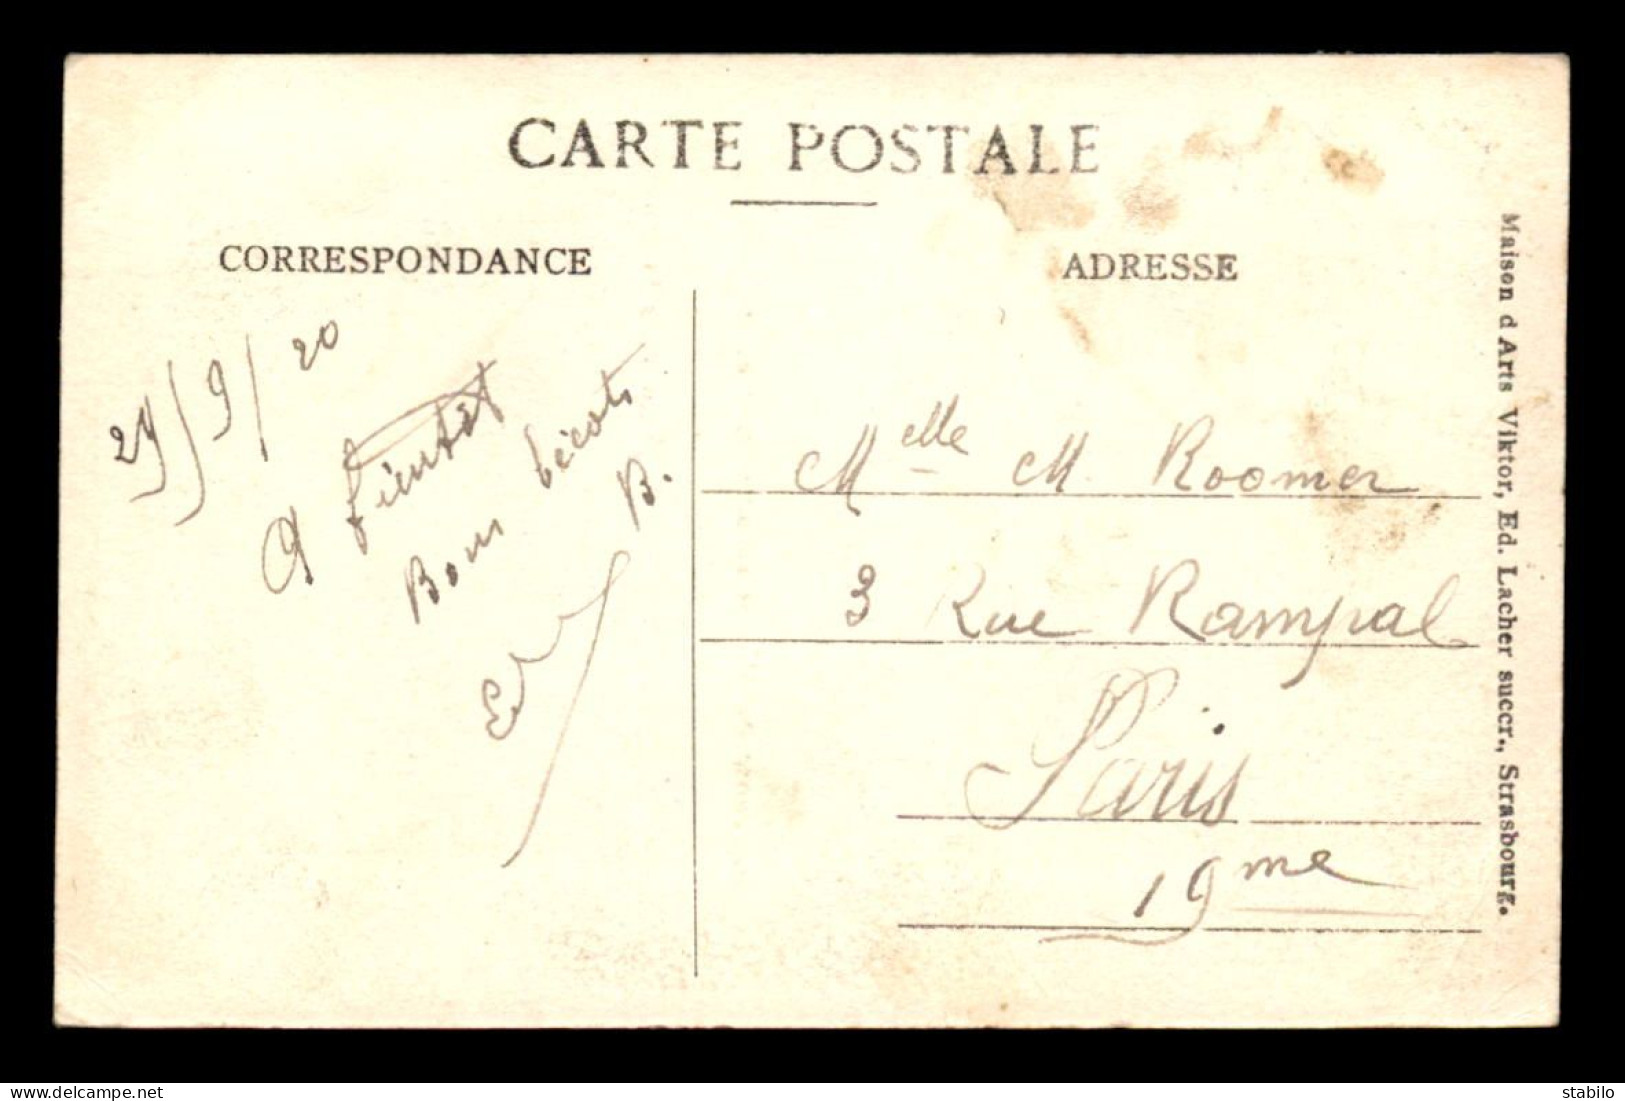 CARTE POSTALE
CORRESPONDANCE
ADRESSE
/9/20
A bientôt
Bons bécots
B.
Melle M. Roomer
3 Rue Rampal
Paris
19me
Maison d Arts Viktor, Ed. Lacher succr., Strasbourg.
stabilo